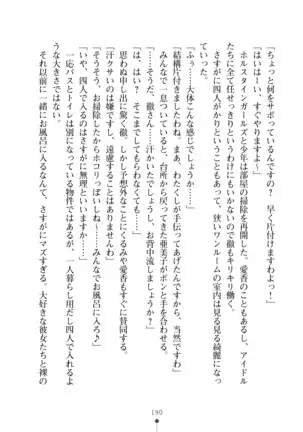 「ちょっと何をサボっているんですの？　早く片付けますわよっ」
「はいはい、すぐやりますよ」
ホルスタインガールズと少年は部屋の掃除を再開した。愛香のこともあるし、アイドルに全任せっきりというわけにもいかないので徹もキリキリ働く。
さすがに四人がかりとなると、狭いワンルームの室内は見る見る綺麗になっていった。
「ふぅ……大体こんな感じでしょうか」
「結構片付きましたわね。まあ、わたくしが手伝ってあげたんですから、当然ですわ」
みんなで一息ついていると、台所から戻ってきた亜美子がポンと手を合わせた。
「……そうだ、徹さん……汗かいたでしょうし、お背中流しましょうか？」
「ええっ？　そ、そこまでしてもらわなくても……」
思わぬ申し出に驚く徹。しかし予想外なことにくるみや愛香もすぐに賛同する。
「汗をかいたのは嫌いですし、遠慮することはありませんわ」
「そうそう、お掃除したからホコリっぽいしね〜……みんなでお風呂に入ろ♪」
「さすがに、四人で入るのはさすがに無理じゃないですか……」
一応バスとトイレは別になっている物件ではあるが、一人暮らし用だし四人で入れるような大きさではない。
それ以前に一緒にお風呂に入るなんて、さすがにマズすぎる。大好きな彼女たちと裸の
190